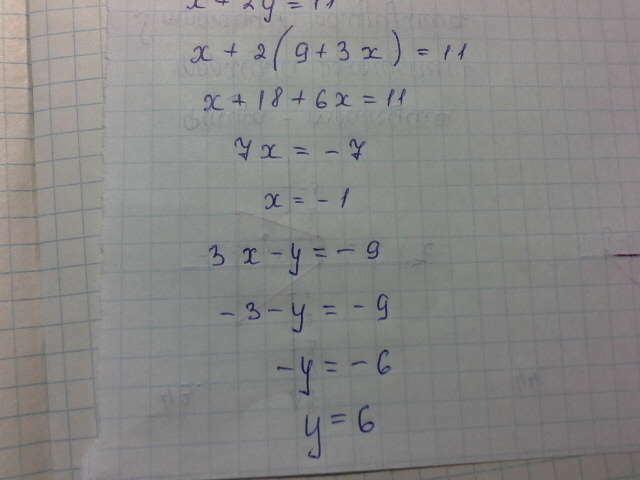 x + 2y = 11
x + 2(9 + 3x) = 11
x + 18 + 6x = 11
7x = - 7
x = - 1
3x - y = - 9
- 3 - y = - 9
- y = - 6
y = 6